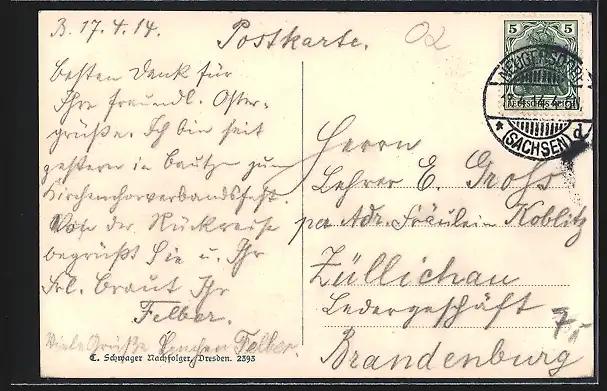 B. 17.4.14.
Postkarte.
besten Dank für
Ihre freundl. Oster-
grüße. Ich bin seit
gestern in Bautzen zum
Kirchenchorverbandsfest.
der Rückreise
begrüßt Sie u. Ihr
Frl. Braut Ihr
Felber.
Viele Grüße Lenchen Felber.
E. Schwager Nachfolger, Dresden. 2393
02
5 5
DEUTSCHES REICH
NEUGERSDORF
* (SACHSEN) d
Herrn
Lehrer E. Groß
per Adr. Fräulein Koblitz
Züllichau
Ledergeschäft
Brandenburg